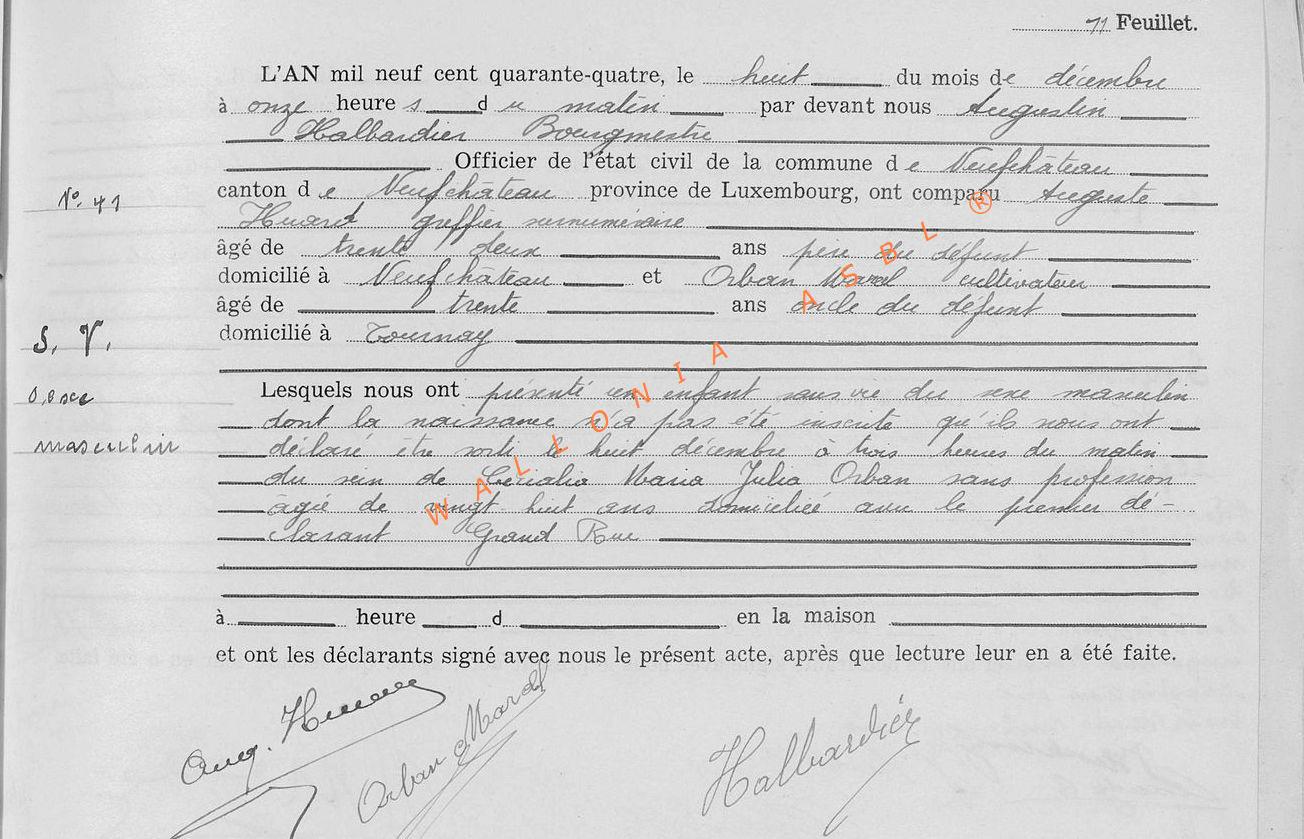 71 Feuillet.
L'AN mil neuf cent quarante-quatre, le huit du mois de décembre
à onze heures du matin par devant nous Augustin
Halbardier Bourgmestre
Officier de l'état civil de la commune de Neufchâteau
N°. 41
canton de Neufchâteau province de Luxembourg, ont comparu Auguste
greffier surnuméraire
âgé de trente deux ans père du défunt
domicilié à Neufchâteau et Orban Marcel cultivateur
âgé de trente ans oncle du défunt
S. V.
domicilié à Tournay
Lesquels nous ont présenté un enfant sans vie du sexe masculin
masculin
dont la naissance n'a pas été inscrite qu'ils nous ont
déclaré être sorti le huit décembre à trois heures du matin
du sein de Maria Julia Orban sans profession
âgée de vingt huit ans domiciliée avec le premier dé-
clarant Grand Rue
à heure d en la maison
et ont les déclarants signé avec nous le présent acte, après que lecture leur en a été faite.
Orban Marcel
Halbardier
WALLONIA ASBL ®